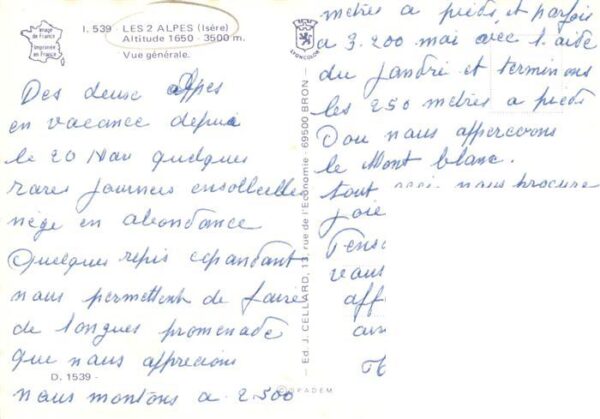 Image
de France
Imprimée
en France
I. 539 - LES 2 ALPES (Isère)
Altitude 1650 - 3500 m.
Vue générale.
LYONCOLOR
Des deuse Alpes
en vacance depuis
le 20 Mar quelques
rares journeés ensolleillé
nége en abondance
Quelques repis cepandant
nous permettent de faire
de longues promenade
que nous apprecions
D. 1539 -
nous montons a 2.500
Ed. J. CELLARD, 13, rue de l'Economie - 69500 BRON -
© SPADEM
mètres a pieds, et parfois
a 3.200 mai avec l'aide
du Jandri et terminons
les 250 metres a pieds
Dou nous appercevons
le Mont blanc.
tout ceci nous procure
joie
vous
aff